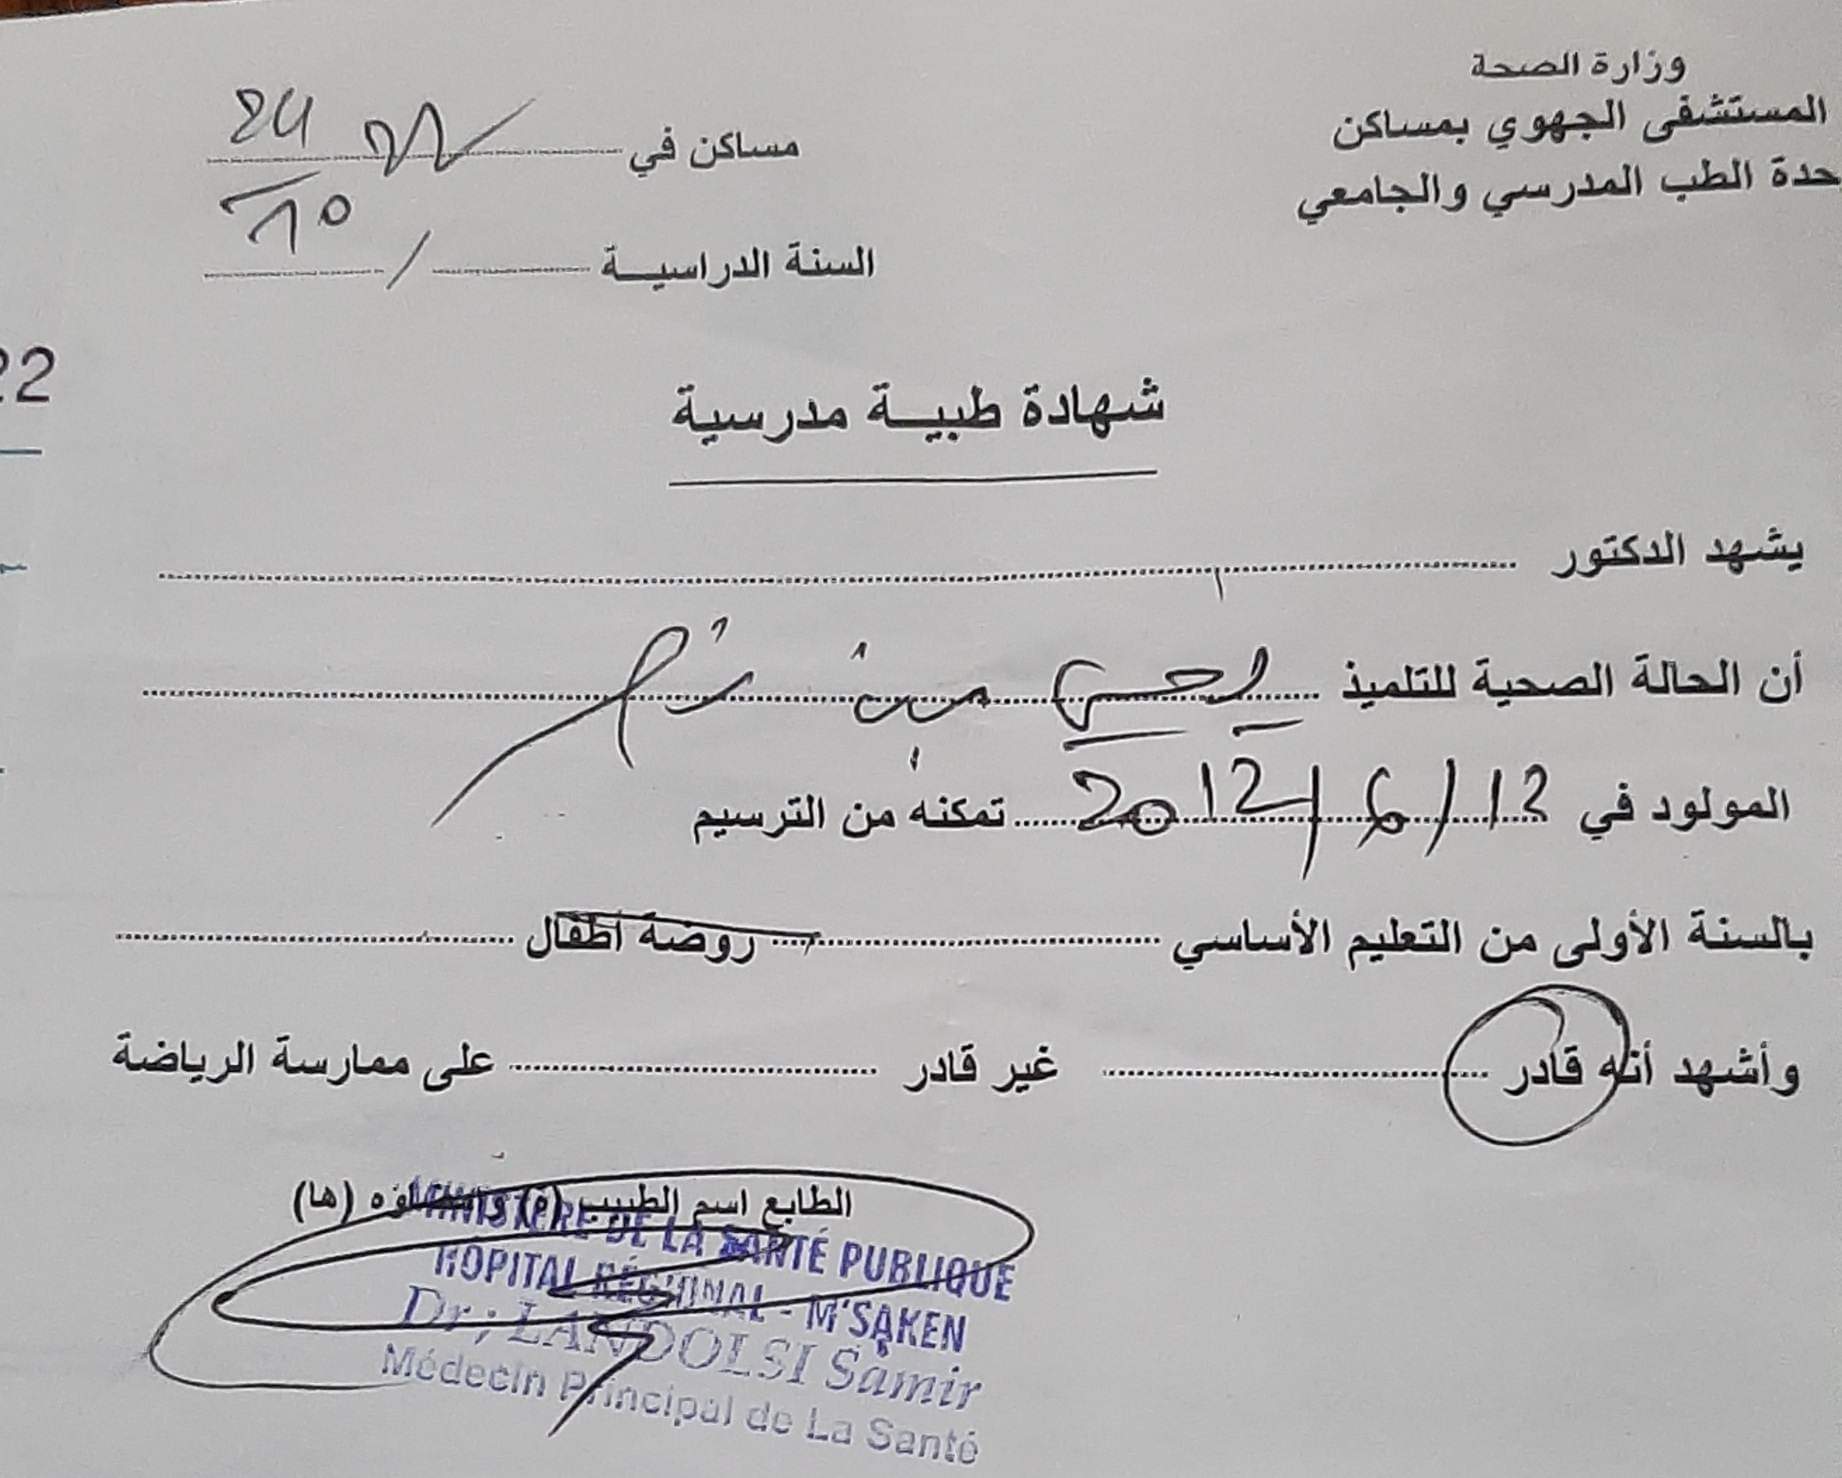 وزارة الصحة
المستشفى الجهوي بمساكن
حدة الطب المدرسي والجامعي
مساكن في 24
10
السنة الدراسيـــة /
22
شهادة طبيـــة مدرسية
يشهد الدكتور
أن الحالة الصحية للتلميذ يحيى بن
المولود في 12/6/2012 تمكنه من الترسيم
بالسنة الأولى من التعليم الأساسي روضة أطفال
وأشهد أنه قادر غير قادر على ممارسة الرياضة
الطابع اسم الطبيب (ة) وإمضاؤه (ها)
MINISTÈRE DE LA SANTÉ PUBLIQUE
HÔPITAL RÉGIONAL - M'SAKEN
Dr; LANDOLSI Samir
Médecin Principal de La Santé